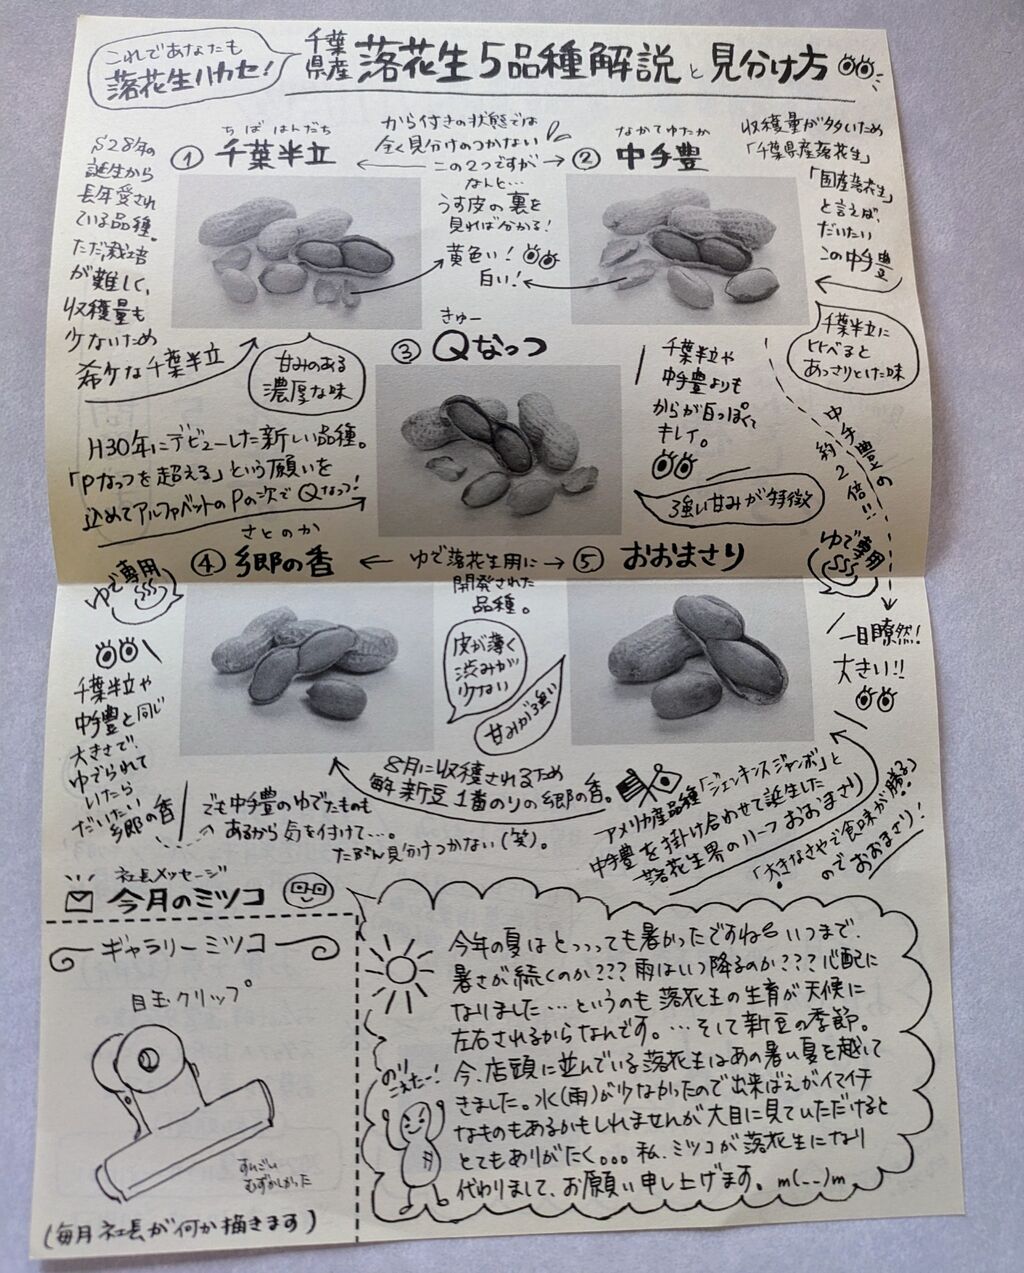 これであなたも
落花生ハカセ!
千葉
県産
落花生5品種解説と見分け方
S28年の
誕生から
長年愛され
ている品種。
ただ、栽培
が難しく、
収穫量も
少ないため
希少な千葉半立
ちば はんだち
① 千葉半立
から付きの状態では
全く見分けのつかない
この2つですが
なんと…
うす皮の裏を
見れば分かる!
黄色い!
白い!
なかてゆたか
② 中手豊
収穫量が多いため
「千葉県産落花生」
「国産落花生」
と言えば、
だいたい
この中手豊
甘みのある
濃厚な味
千葉半立に
比べると
あっさりとした味
きゅー
③ Qなっつ
H30年にデビューした新しい品種。
「Pなっつを超える」という願いを
込めてアルファベットのPの次でQなっつ!
千葉半立や
中手豊よりも
からが白っぽくて
キレイ。
強い甘みが特徴
中手豊の
約2倍!!
さとのか
④ 郷の香
ゆで落花生用に
開発された
品種。
⑤ おおまさり
ゆで専用
ゆで専用
千葉半立や
中手豊と同じ
大きさで、
ゆでられて
いたら
だいたい
郷の香
皮が薄く
渋みが
少ない
甘みが強い
一目瞭然!
大きい!!
8月に収穫されるため
新豆1番のりの郷の香。
でも中手豊のゆでたものも
あるから気を付けて…。
たぶん見分けつかない(笑)。
アメリカ産品種「ジェンキンスジャンボ」と
中手豊を掛け合わせて誕生した
落花生界のハーフ おおまさり
「大きなさやで食味が勝る」
のでおおまさり!
社長メッセージ
今月のミツコ
ギャラリーミツコ
目玉クリップ
すんごい
むずかしかった
(毎月社長が何か描きます)
今年の夏はとっっっても暑かったですね いつまで、
暑さが続くのか???雨はいつ降るのか???心配に
なりました…というのも落花生の生育が天候に
左右されるからなんです。…そして新豆の季節。
今、店頭に並んでいる落花生はあの暑い夏を越して
きました。水(雨)が少なかったので出来ばえがイマイチ
なものもあるかもしれませんが大目に見ていただけると
とてもありがたく。。。私、ミツコが落花生になり
代わりまして、お願い申し上げます。m(__)m
のり
こえたー!